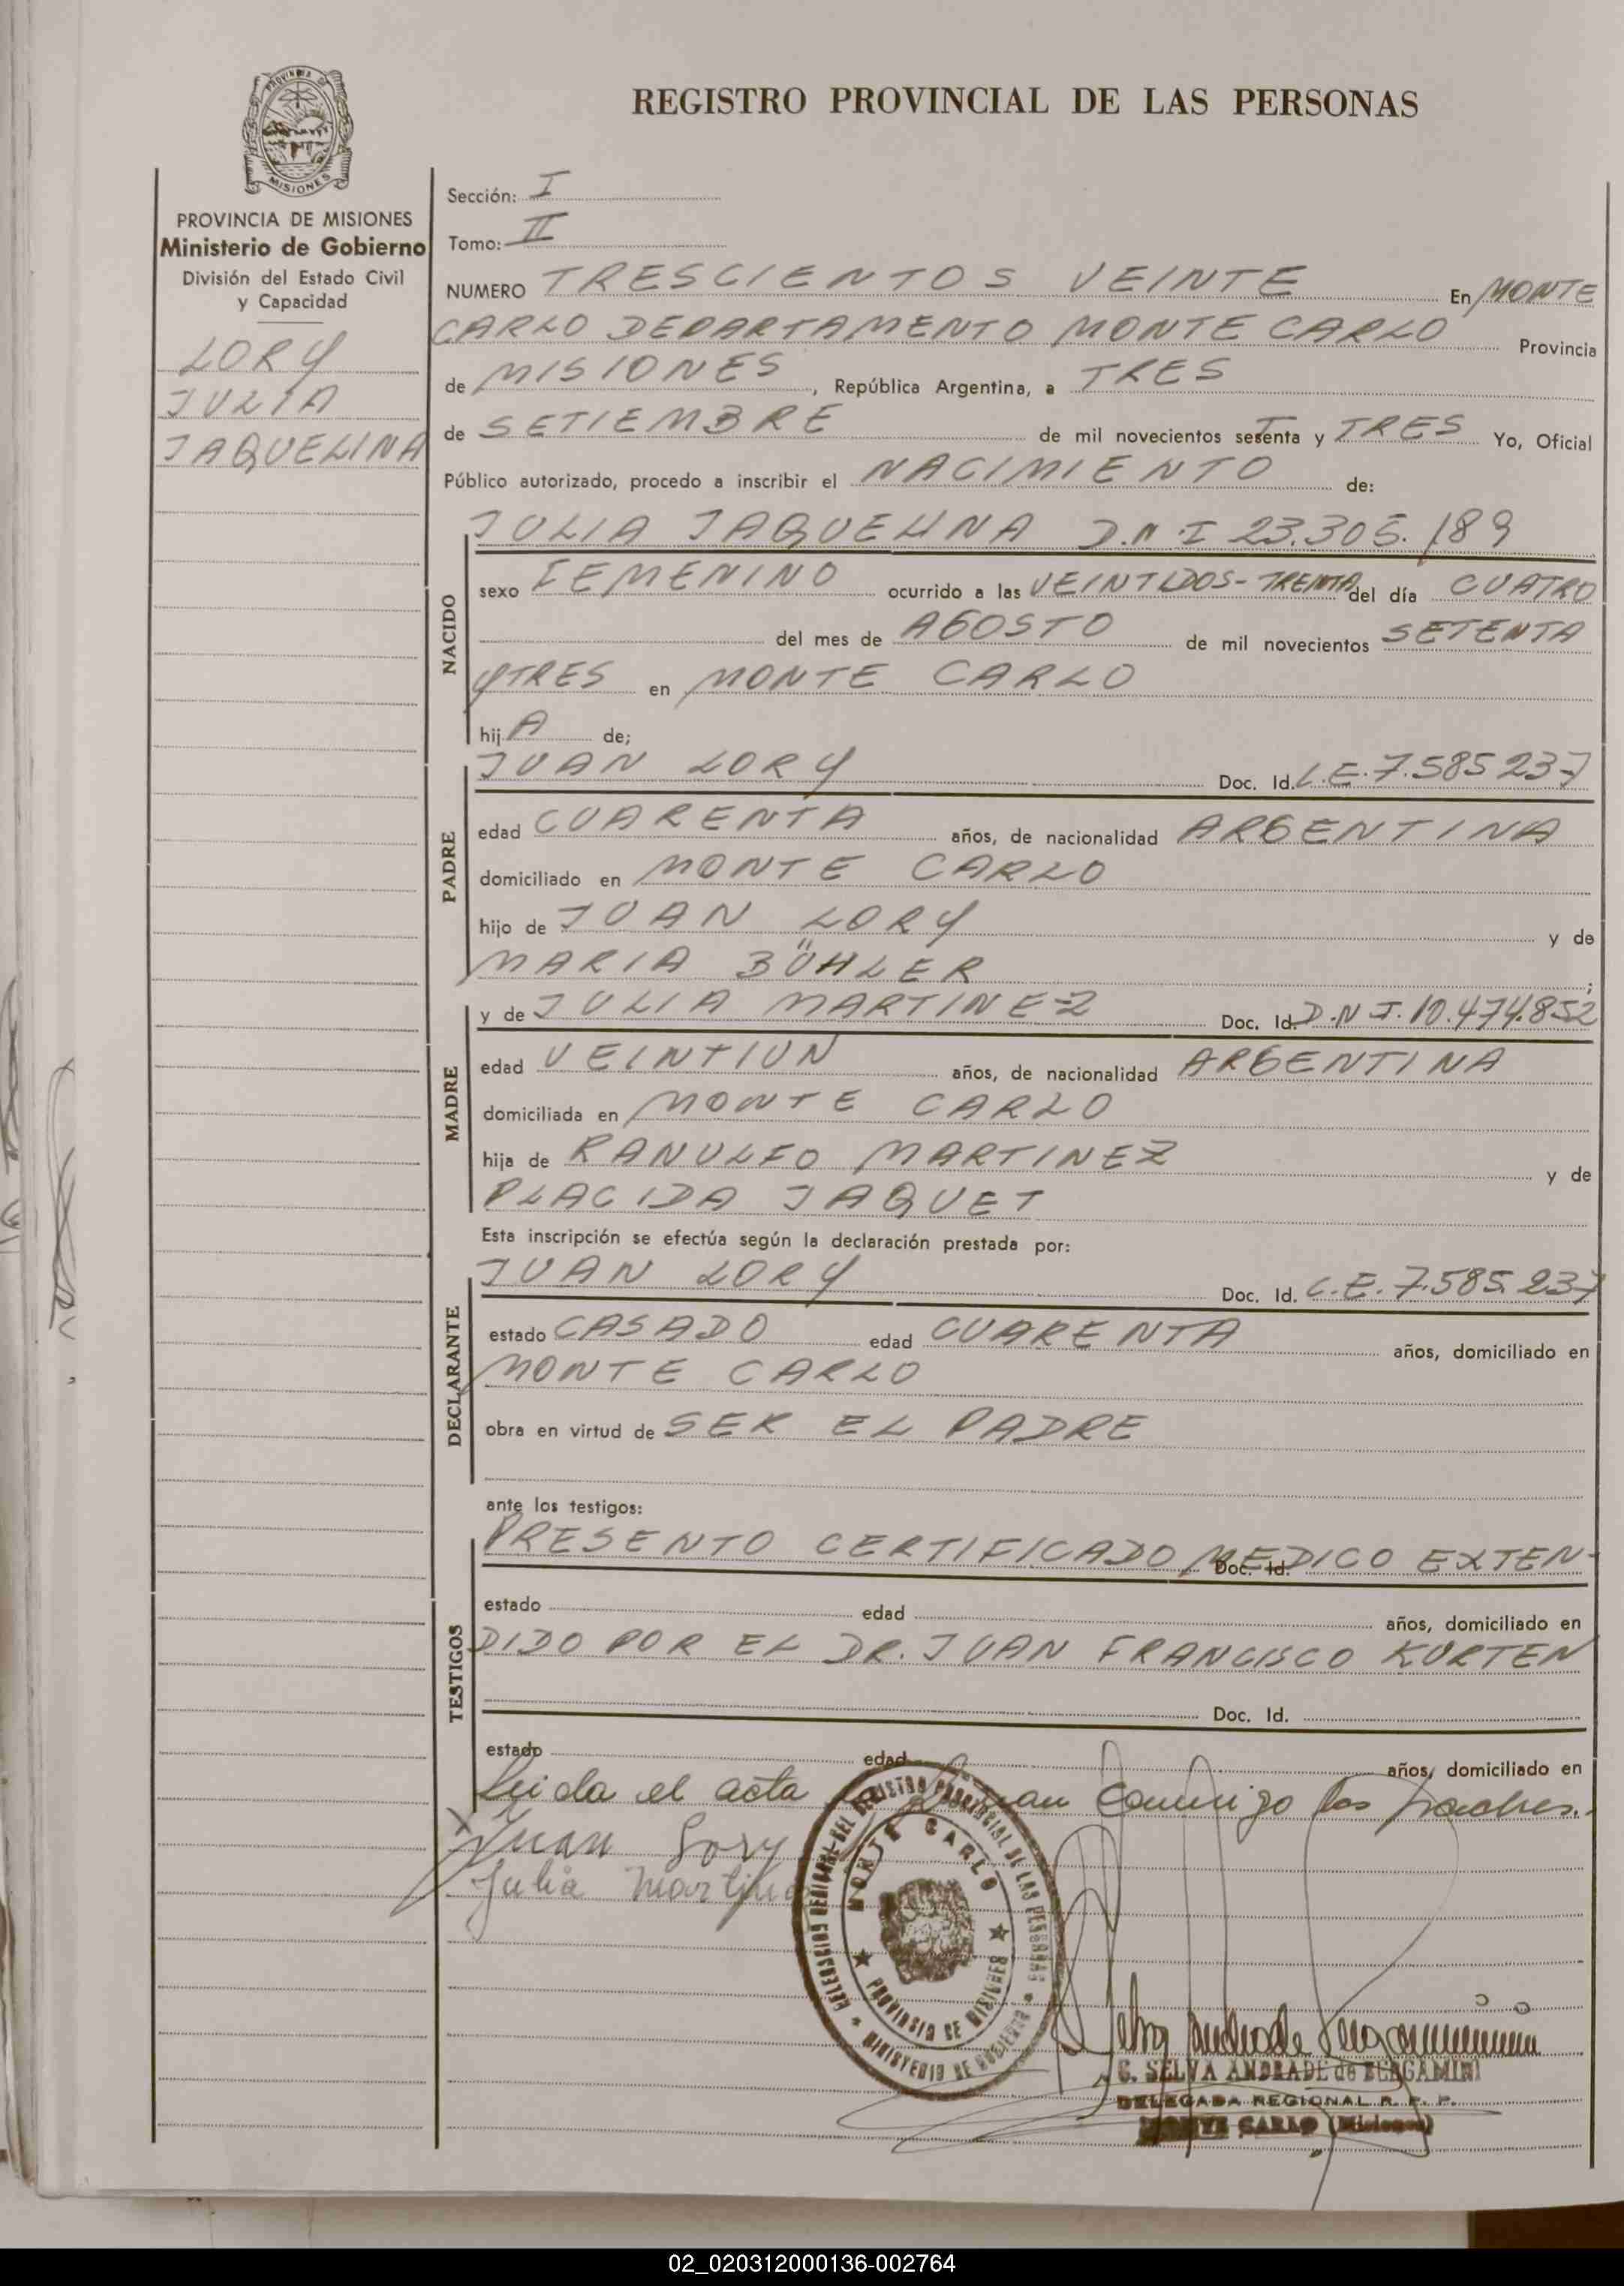 PROVINCIA DE MISIONES
REGISTRO PROVINCIAL DE LAS PERSONAS
PROVINCIA DE MISIONES
Ministerio de Gobierno
División del Estado Civil
y Capacidad
LORY
JULIA
JAQUELINA
Sección: I
Tomo: II
NUMERO TRESCIENTOS VEINTE En MONTE
CARLO DEPARTAMENTO MONTE CARLO Provincia
de MISIONES, República Argentina, a TRES
de SETIEMBRE de mil novecientos setenta y TRES Yo, Oficial
Público autorizado, procedo a inscribir el NACIMIENTO de:
NACIDO
JULIA JAQUELINA D.N.I 23.305.189
sexo FEMENINO ocurrido a las VEINTIDOS-TREINTA del día CUATRO
del mes de AGOSTO de mil novecientos SETENTA
Y TRES en MONTE CARLO
hij A de;
PADRE
JUAN LORY Doc. Id. L.E. 7.585237
edad CUARENTA años, de nacionalidad ARGENTINA
domiciliado en MONTE CARLO
hijo de JUAN LORY y de
MARIA BÜHLER ;
MADRE
y de JULIA MARTINEZ Doc. Id. D.N.I. 10.474.852
edad VEINTIUN años, de nacionalidad ARGENTINA
domiciliada en MONTE CARLO
hija de RANULFO MARTINEZ y de
PLACIDA JAQUET
Esta inscripción se efectúa según la declaración prestada por:
DECLARANTE
JUAN LORY Doc. Id. L.E. 7.585.237
estado CASADO edad CUARENTA años, domiciliado en
MONTE CARLO
obra en virtud de SER EL PADRE
ante los testigos:
TESTIGOS
PRESENTO CERTIFICADO MEDICO EXTEN-
Doc. Id.
estado edad años, domiciliado en
DIDO POR EL DR. JUAN FRANCISCO KURTEN
Doc. Id.
estado edad años, domiciliado en
Leida el acta firman conmigo los padres.
Juan Lory
Julia Martinez
DELEGACION REGIONAL DEL REGISTRO PROVINCIAL DE LAS PERSONAS
MONTE CARLO
PROVINCIA DE MISIONES
MINISTERIO DE GOBIERNO
C. SELVA ANDRADE de BERGAMINI
DELEGADA REGIONAL R. P. P.
MONTE CARLO (Misiones)
02_020312000136-002764